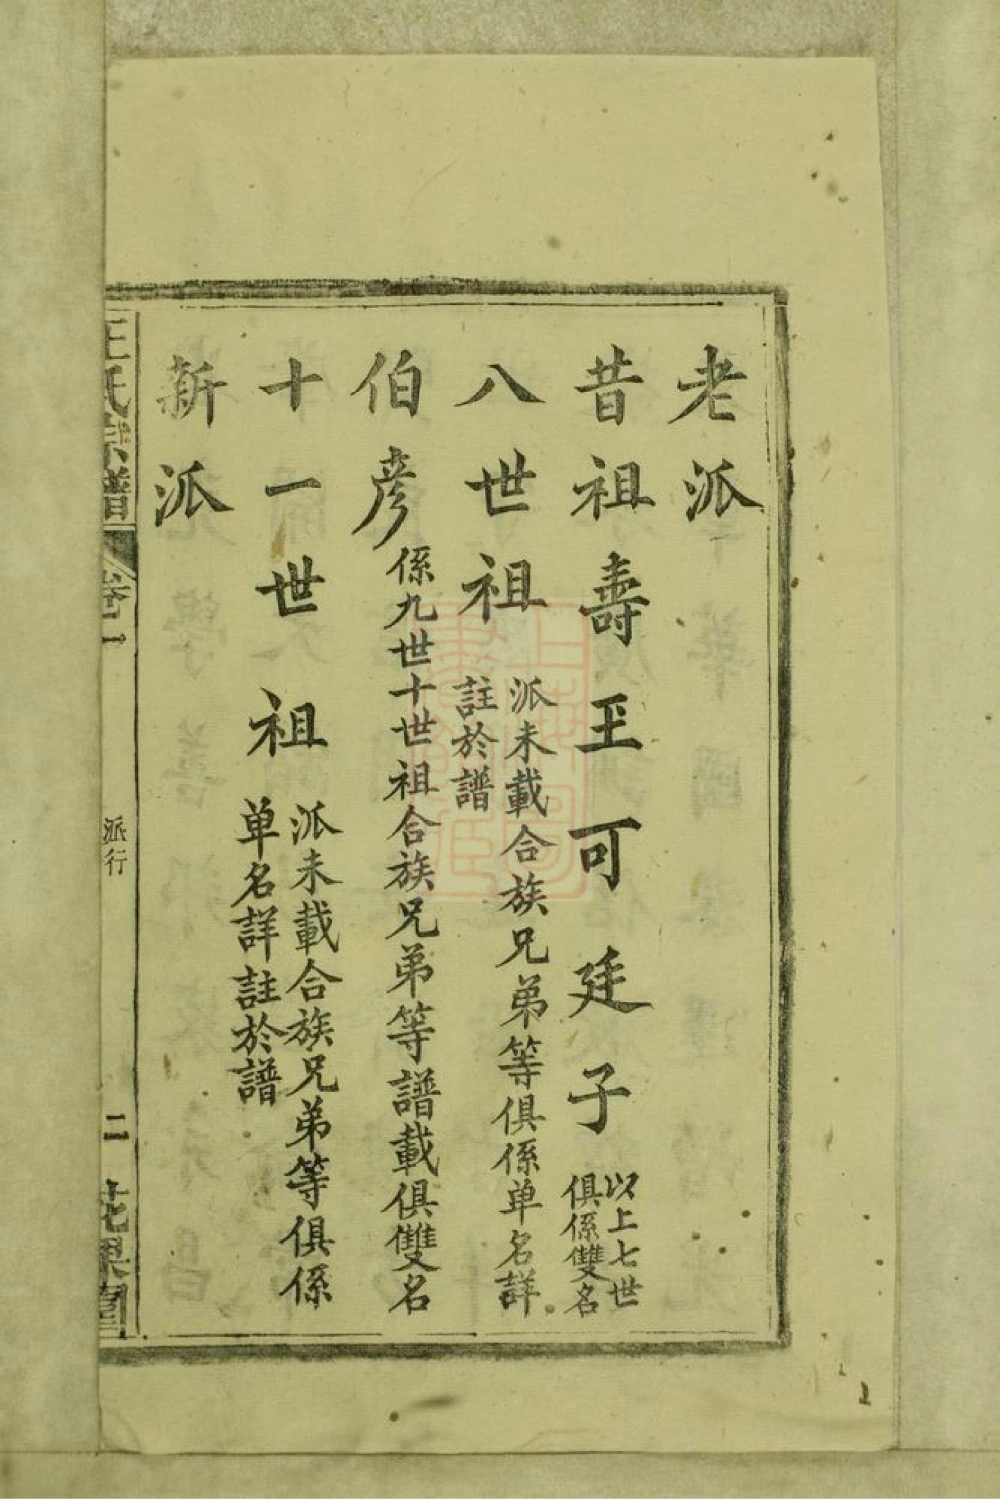 老派
昔祖壽玉可廷子
以上七世
俱係雙名
八世祖
派未載合族兄弟等俱係单名詳
註於譜
伯彦
係九世十世祖合族兄弟等譜載俱雙名
十一世祖
派未載合族兄弟等俱係
单名詳註於譜
新派
王氏宗譜
卷一
派行
二
花果園